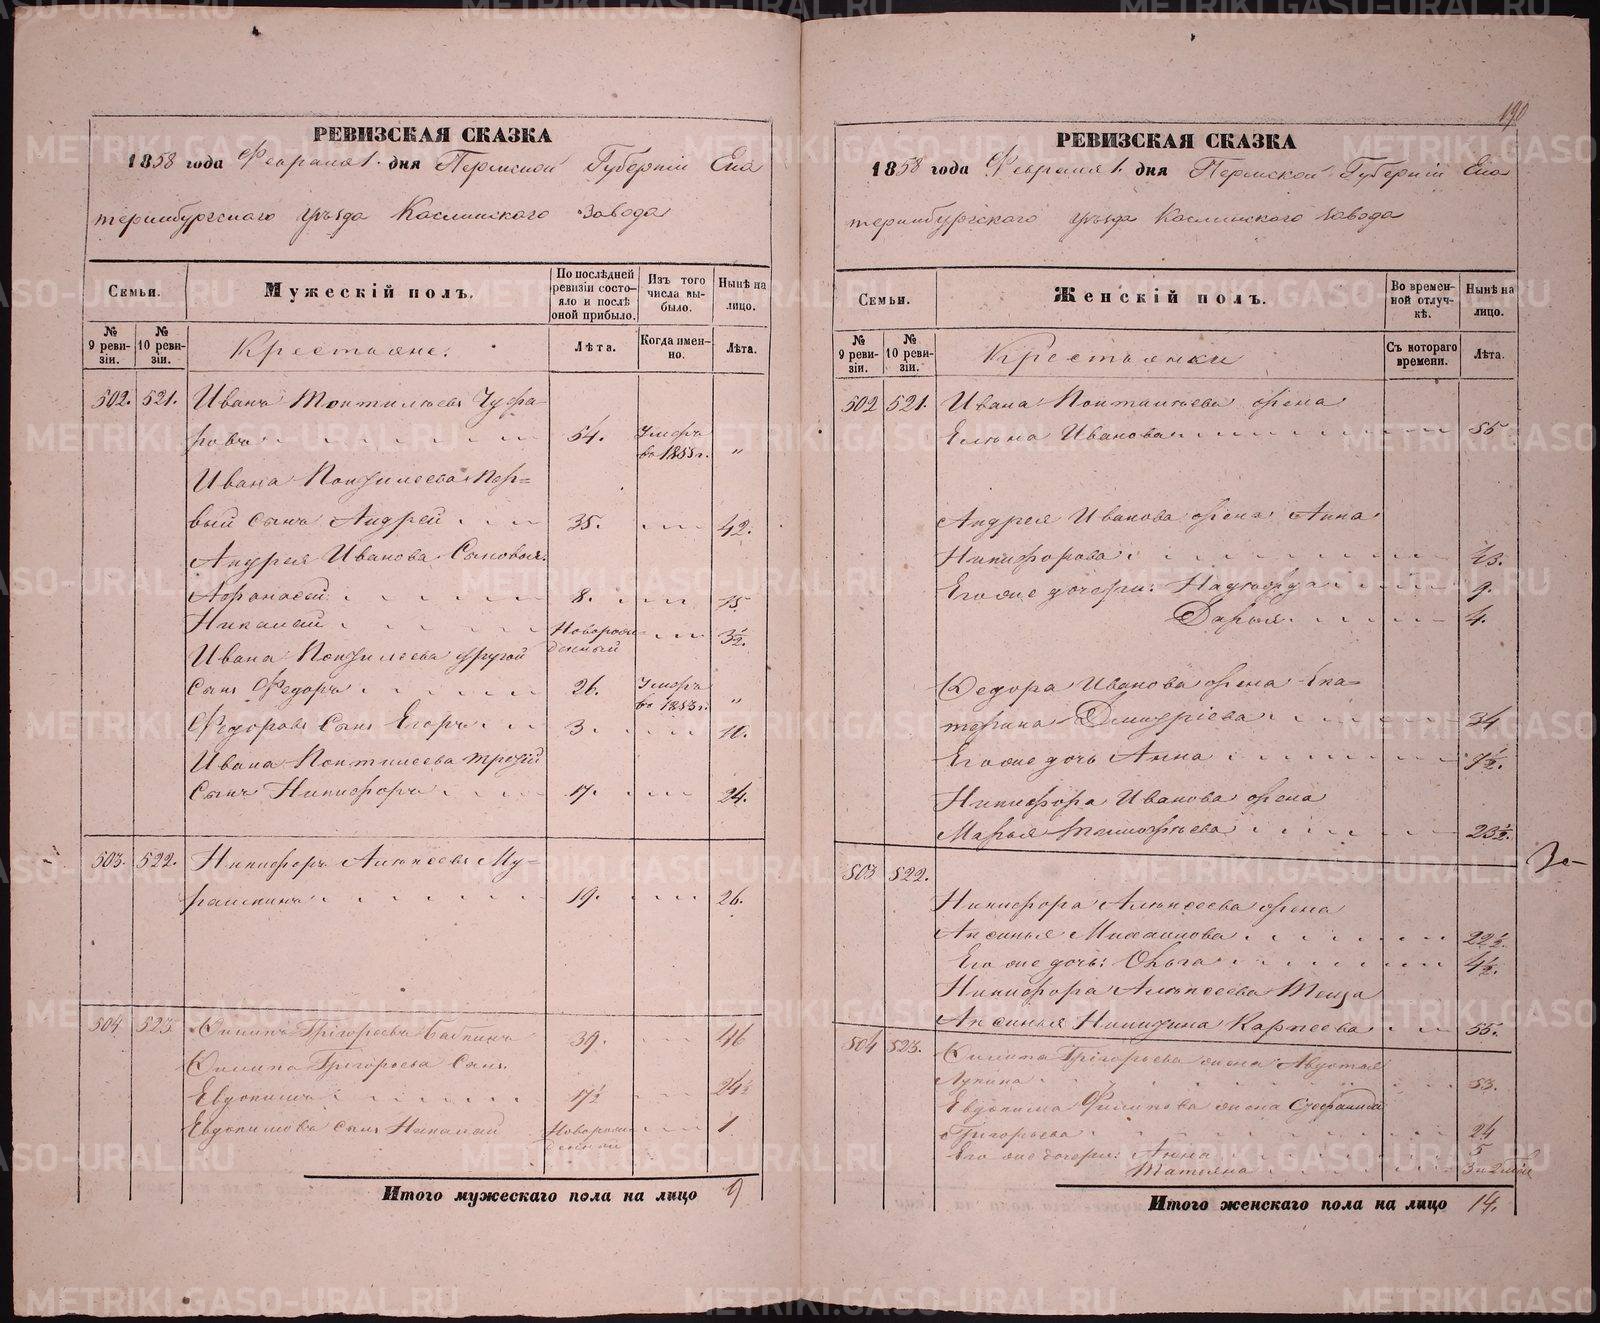 190
РЕВИЗСКАЯ СКАЗКА
1858 года Февраля 1. дня Пермской Губерніи Ека
теринбургскаго уѣзда Каслинскаго Завода
Семьи.
Мужескій полъ.
По послѣдней ревизіи состояло и послѣ оной прибыло.
Изъ того числа выбыло.
Нынѣ на лицо.
№ 9 ревизіи.
№ 10 ревизіи.
Крестьяне.
Лѣта.
Когда именно.
Лѣта.
502. 521. Иванъ Понтилѣевъ Чуфа
ровъ 54. Умеръ въ 1855 г. "
Ивана Понтилеева пер=
вый сынъ Андрей 35. 42.
Андрея Иванова Сыновья:
Афонасей 8. 15.
Николай Новорожденный 3½.
Ивана Понтилеева другой
Сынъ Федоръ 26. Умеръ въ 1853 г. "
Федоровъ Сынъ Егоръ 3. 10.
Ивана Понтилеева третій
Сынъ Никифоръ 17. 24.
503. 522. Никифоръ Алѣксеевъ Му=
19. 26.
504 523 Филипъ Григорьевъ Бабкинъ 39. 46
Филипа Григорьева Сынъ
Евдокимъ 17½ 24½
Евдокимовъ сынъ Николай Новорожденный 1
Итого мужескаго пола на лицо 9
РЕВИЗСКАЯ СКАЗКА
1858 года Февраля 1. дня Пермской Губерніи Ека
теринбургскаго уѣзда Каслинскаго завода
Семьи.
Женскій полъ.
Во временной отлучкѣ.
Нынѣ на лицо.
№ 9 ревизіи.
№ 10 ревизіи.
Крестьянки
Съ котораго времени.
Лѣта.
502 521. Ивана Понтилѣева жена
Елѣна Иванова 55
Андрея Иванова жена Анна
Никифорова 43.
Его же дочери: Надѣжда 9.
Дарья 4.
Федора Иванова жена Ека=
терина Дмитріева 34
Его же дочь Анна 7½.
Никифора Иванова жена
Марья Тимофѣева 23½.
503 522.
Никифора Алѣксеева жена
Аксинья Михаилова 22½.
Его же дочь: Ольга 4½.
Никифора Алѣксеева Теща
Аксинья Никитина Карпеева 55.
504 523. Филипа Григорьева жена Авдотья
Лукина 53.
Евдокима Филипова жена Стефанида
Григорьева 24
Его же дочери: Анна 5
Татьяна
Итого женскаго пола на лицо 14.